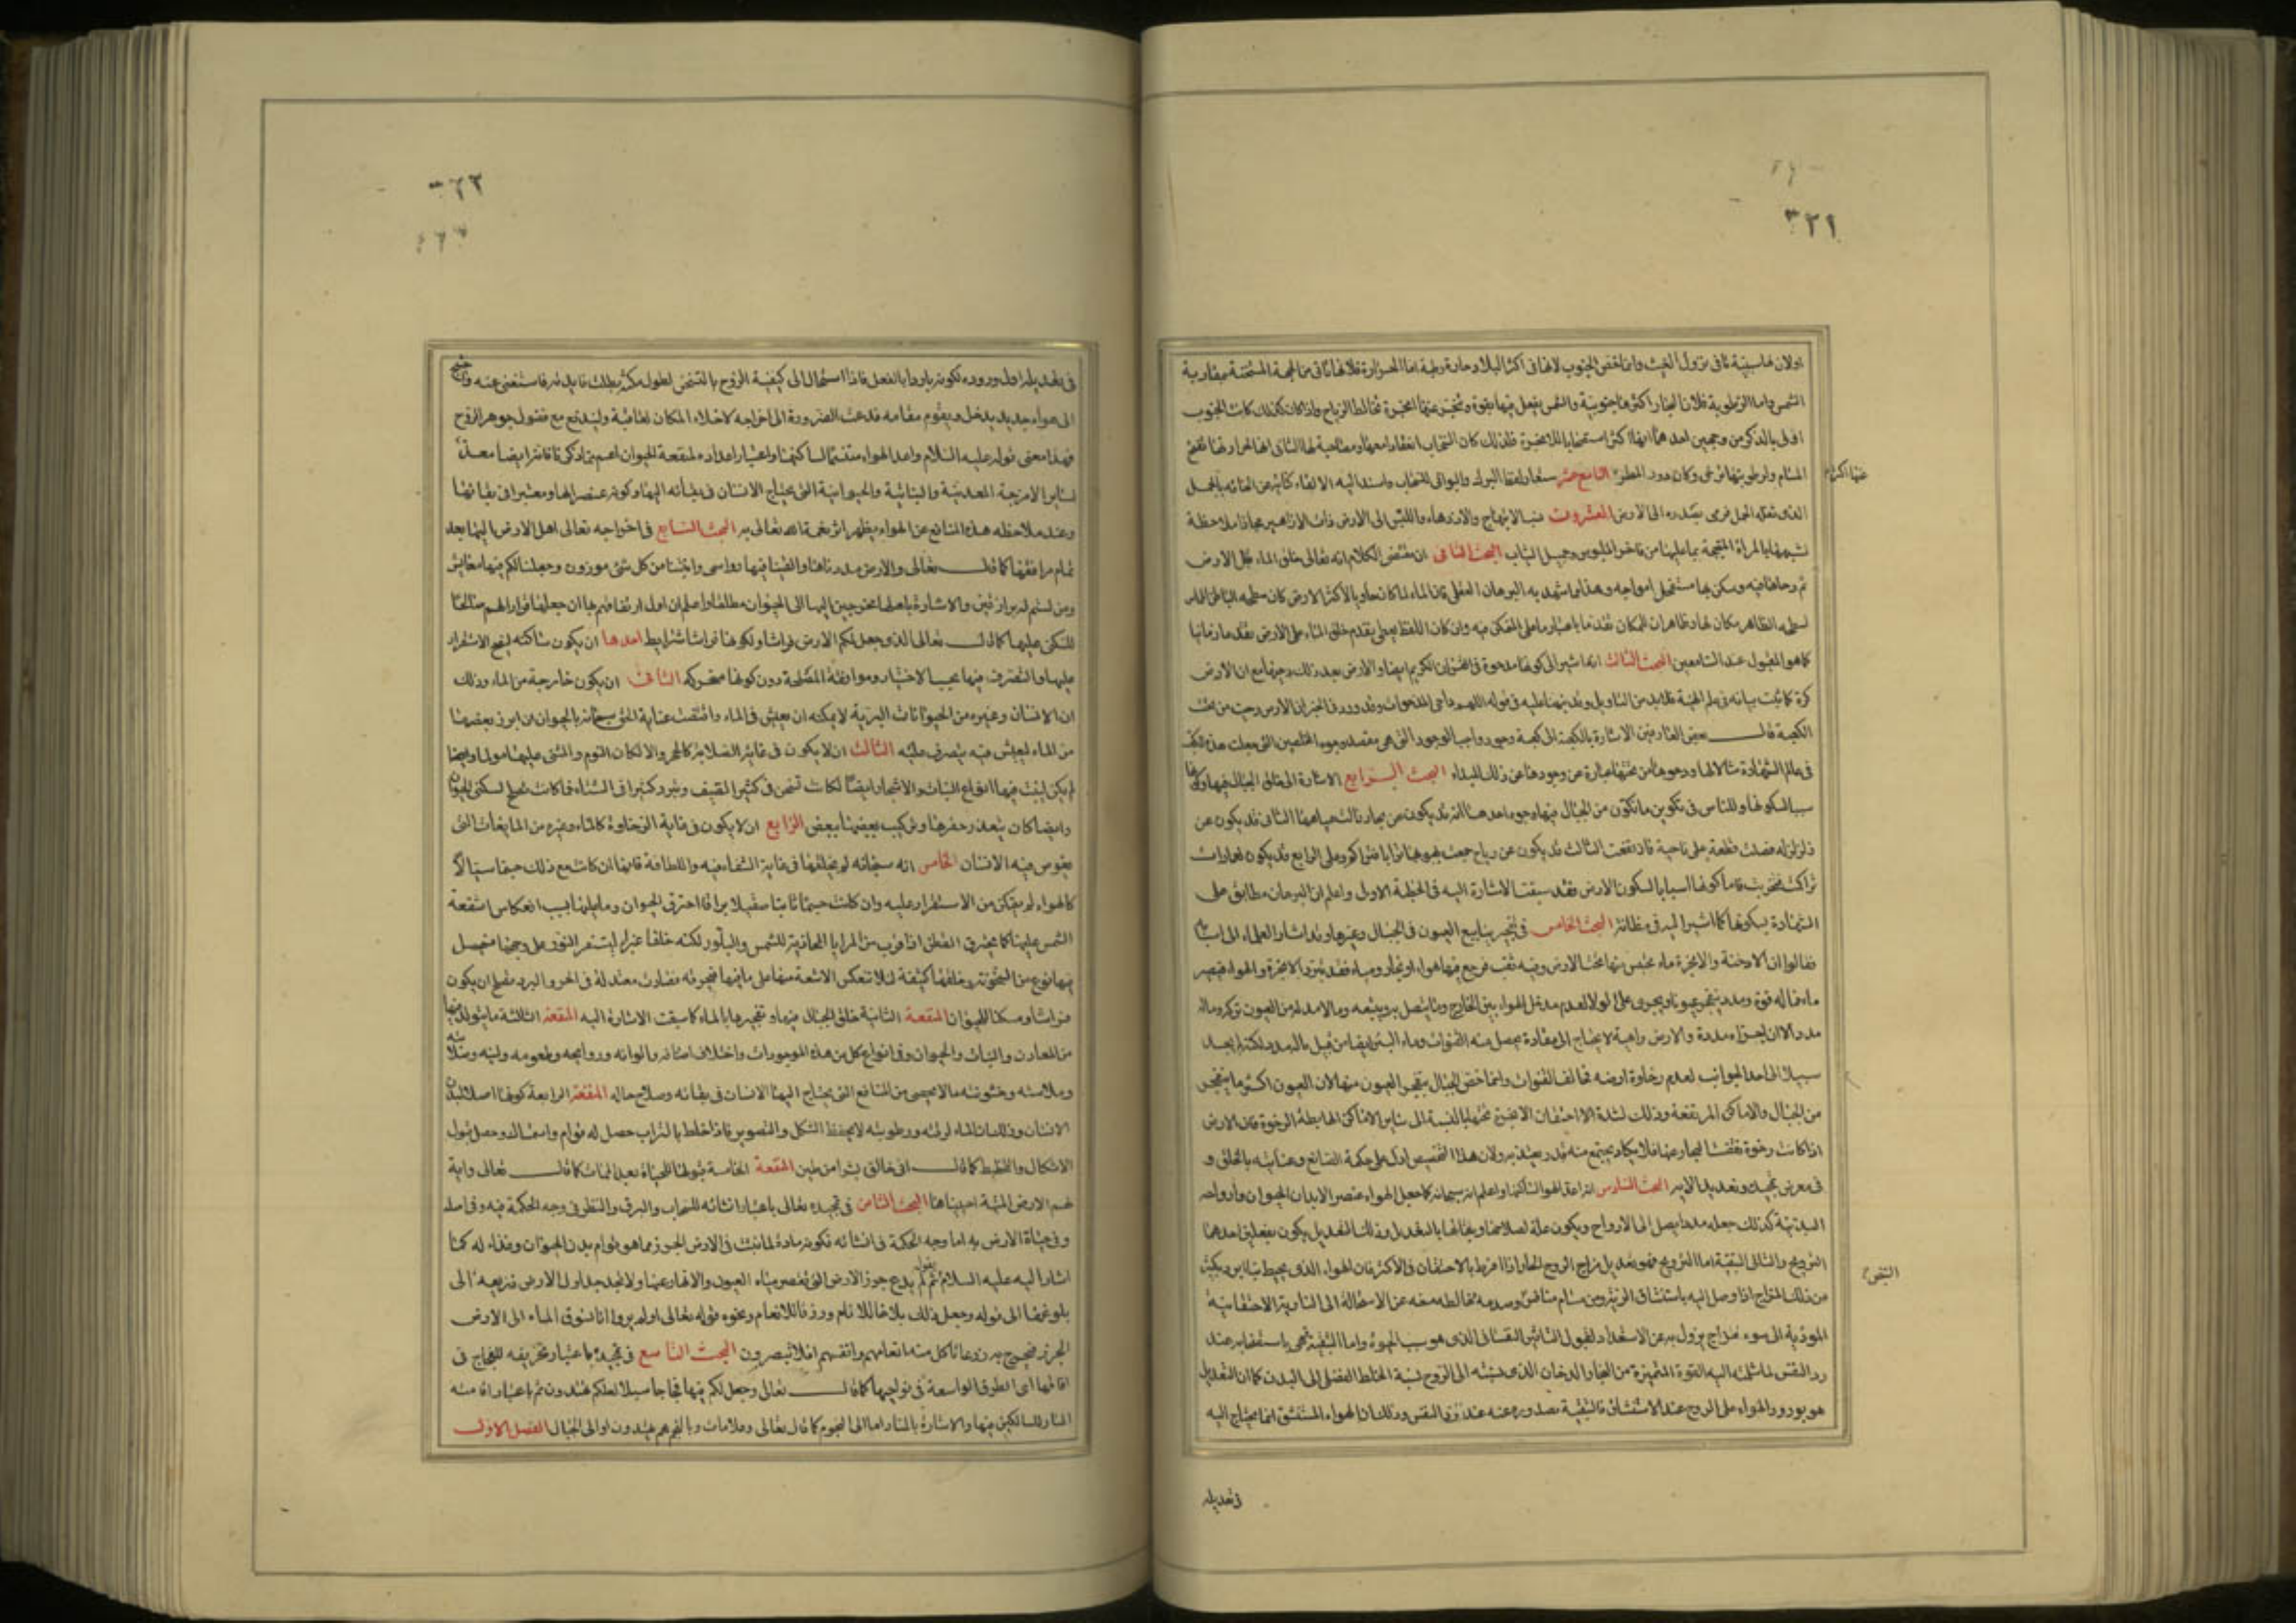 ٣٢١
اولان
الشمس واما الرطوبة فلان البحار اكثرها جنوبية والشمس يفعل فيها بقوة
اولى بالذكر من وجهين احدهما انها اكثر
المسام ولرطوبتها
الذى
البحث الثانى ان مقتضى الكلام انه تعالى خلق الماء قبل الارض
ثم دحاها فيه وسكن بها مستفحل امواجه وهذا مما شهد به البرهان العقلى فان الماء لما كان حاويا لاكثر الارض كان سطحه الباطن المماس
لسطحه الظاهر مكان لها وظاهر ان للمكان تقدما باعتبار ما على المتمكن فيه وان كان اللفظ يعطى تقدم خلق الماء على الارض تقدما زمانيا
كما هو المقبول عند السامعين البحث الثالث انه اشير الى كونها مدحوة فى القرآن الكريم ايضا والارض بعد ذلك دحيها مع ان الارض
كرة كما ثبت بيانه فى علم الهيئة فلابد من التاويل وقد نبهنا عليه فى قوله اللهم داحى المدحوات وقد ورد فى الخبر ان الارض دحيت من تحت
الكعبة قال بعض العارفين الاشارة بالكعبة الى كعبة وجود واجب الوجود التى هى مقصد وجوه المخلصين التى جعلت هذه الكعبة
فى عالم الشهادة مثالا لها ودحوها من تحتها عبارة عن وجودها عن ذلك المبداء البحث الرابع الاشارة الى خلق الجبال فيها وكونها
سببا لسكونها وللناس فى تكوين ما تكون من الجبال فيها وجوه احدها انه قد يكون عن بحار زالت مياهها الثانى قد يكون عن
زلزلة فصلت قطعة على ناحية فارتفعت الثالث قد يكون عن رياح جمعت بهبوبها ترابا فتراكم وعلى الرابع قد يكون لعمارات
تراكمت فخربت فاما كونها اسبابا لسكون الارض فقد سبقت الاشارة اليه فى الخطبة الاولى واعلم ان البرهان مطابق على
الشهادة بسكونها كما اشير اليه فى مظانه البحث الخامس فى تفجير ينابيع العيون فى الجبال وغيرها وقد اشار العلماء الى اسبابه
فقالوا ان الادخنة والابخرة ماء يحتبس منها تحت الارض وفيه ثقب فرجع فيها هواء او بخار ومياه فقد تبرد الابخرة والهواء فيصير
ماء فما له قوة ومدد يتفجر عيونا ويجرى على الولاء لعدم مدخل الهواء بين الخارج وما يتصل به ويتبعه وما لا مدد له من العيون تركد وماله
مدد الا ان اجزاءه مبددة والارض واهية لا يحتاج الى مقاومة يحصل منه القنوات وماء البئر ايضا من قبيل ماله مدد لكنه لم يجد
سبيلا الى احد الجوانب لعدم رخاوة ارضه مخالف القنوات وانما خص الجبال بتفجر العيون منها لان العيون اكثر ما يتفجر
من الجبال والاماكن المرتفعة وذلك لشدة الاحتقان الابخرة تحتها بالنسبة الى ساير الاماكن الهابطة الرخوة فان الارض
اذا كانت رخوة نفشت البخار عنها فلا يكاد يجتمع منه قدر يعتد به ولان هذا التخصيص ادل على حكمة الصانع وعنايته بالخلق و
فى معرض تمجيده وتعديد الآية البحث السادس انه اعد الهواء لساكنها واعلم انه سبحانه كما جعل الهواء عنصرا لابدان الحيوان وارواحه
البدنية كذلك جعله مددا يصل الى الارواح ويكون علة لصلاحها وبقائها بالتعديل وذلك التعديل يكون بفعلين احدهما
الترويح والثانى التنقية اما الترويح فهو تعديل مزاج الروح الحار اذا افرط بالاحتقان فى الاكثر فان الهواء الذى يحيط بنا ابرد بكثير
من ذلك المزاج فاذا وصل اليه باستنشاق الرية ومن مسام منافس وصدمه فخالطه منعه عن الاستحالة الى النارية الاحتقانية
الموذية الى سوء مزاج يزول به عن الاستعداد لقبول التاثير النفسانى الذى هو سبب الحيوة واما التنقية فهى باستصحابه عند
رد النفس لما سلمته اليه القوة المميزة من البخار الدخان الذى نسبته الى الروح نسبة الخلط الفضلى الى البدن كما ان التعديل
هو بورود الهواء على الروح عند الاستنشاق فالتنقية بصدوره عنه عند رد النفس وذلك ان الهواء المستنشق انما يحتاج اليه
فى تعديله
٣٢٢
فى تعديله اول وروده لكونه باردا بالفعل فاذا استحال الى كيفية الروح بالتسخن لطول مكثه بطلت فايدته فاستغنى عنه
الى هواء جديد يدخل ويقوم مقامه فدعت الضرورة الى اخراجه لاخلاء المكان لعاقبه وليندفع مع فضول جوهر الروح
فهذا معنى قوله عليه السلام واعد الهواء متنسما لساكنها واعتبار اعداده لمنفعة الحيوان اعم مما ذكرنا فانه ايضا معد
لساير الامزجة المعدنية والنباتية والحيوانية التى يحتاج الانسان فى بقائه اليها وكونه عنصرا لها ومعتبرا فى بقائها
وعند ملاحظة هذه المنافع عن الهواء يظهر اثر نعمة الله تعالى به البحث السابع فى اخراجه تعالى اهل الارض اليها بعد
تمام مرافقها كما قال تعالى والارض مددناها والقينا فيها رواسى وانبتنا من كل شئ موزون وجعلنا لكم فيها معايش
ومن لستم له برازقين والاشارة باهلها مخرجين اليها الى الحيوان مطلقا واعلم ان اول ارتفاقهم بها ان جعلها قرارا لهم صالحا
للسكنى عليها كما قال تعالى الذى جعل لكم الارض فراشا ولكونها فراشا شرايط احدها ان يكون ساكنة ليصح الاستقرار
عليها والتصرف فيها بحسب الاختيار وموافقة المصلحة دون كونها متحركة الثانى ان يكون خارجة من الماء وذلك
ان الانسان وغيره من الحيوانات البرية لا يمكنه ان يعيش فى الماء واقتضت عناية الحق سبحانه بالحيوان ان ابرز بعضها
من الماء ليعيش فيه يتصرف عليه الثالث ان لا يكون فى غاية الصلابة كالحجر والا لكان النوم والمشى عليها مولما وايضا
لم يكن ينبت فيها انواع النبات والاشجار وايضا لكانت تسخن فى كثيرا الصيف وتبرد كثيرا فى الشتاء فما كانت تصلح لسكنى الحيوان
وايضا كان يتعذر حفرها وتركيب بعضها ببعض الرابع ان لا يكون فى غاية الرخاوة كالماء وغيره من المايعات التى
يغوص فيه الانسان الخامس انه سبحانه لم يخلقها فى غاية الشفافية واللطافة فانها ان كانت مع ذلك جسما سيالا
كالهواء لم يتمكن من الاستقرار عليه وان كانت جسما ثابتا صقيلا براقا احترق الحيوان وما عليها بسبب انعكاس اشعة
الشمس عليها كما يحترق القطن اذا قرب من المرايا المحاذية للشمس والبلور لكنه خلقها غبراء ليستقر النور على وجهها فيحصل
فيها نوع من السخونة وخلقها كثيفة لئلا تنعكس الاشعة منها على ما فيها فتحرقه فصارت معتدلة فى الحر والبرد تصلح ان يكون
فراشا ومسكنا للحيوان المنفعة الثانية خلق الجبال فيها وتفجيرها بالماء كما سبقت الاشارة اليه المنفعة الثالثة ما يتولد فيها
من المعادن والنبات والحيوان وفى انواع كل من هذه الموجودات واختلاف اصنافه والوانه وروايحه وطعومه ولينه وصلابته
وملاسته وخشونته مالا يحصى من المنافع التى يحتاج اليها الانسان فى بقائه وصلاح حاله المنفعة الرابعة كونها اصلا لبدن
الانسان وذلك ان الماء لرقته ورطوبته لا يحفظ الشكل والتصوير فاذا خلط بالتراب حصل له قوام واستمساك وحصل قبول
الاشكال والتخطيط كما قال انى خالق بشرا من طين المنفعة الخامسة قبولها للحياة بعد الممات كما قال تعالى وآية
لهم الارض الميتة احييناها البحث الثامن فى تمجيده تعالى باعتبار انشائه للسحاب والبرق والنظر فى وجه الحكمة فيه وفى اصله
وفى حياة الارض به اما وجه الحكمة فى انشائه فكونه مادة لما ينبت فى الارض الجرز مما هو قوام بدن الحيوان وغذاء له كما
اشار اليه عليه السلام بقوله ثم لم يدع جرز الارض التى تقصر مياه العيون والانهار عنها ولا تجد جداول الارض ذريعة الى
بلوغها الى قوله وجعل ذلك بلاغا للانام ورزقا للانعام ونحوه قوله تعالى اولم يروا انا نسوق الماء الى الارض
الجرز فنخرج به زرعا تاكل منه انعامهم وانفسهم افلا تبصرون البحث التاسع فى تمجيده باعتبار تخريقه للفجاج فى
افاقها اى الطرق الواسعة فى نواحيها كما قال تعالى وجعل لكم فيها فجاجا سبلا لعلكم تهتدون ثم باعتبار اقامته
المنار للسالكين فيها والاشارة بالمنار اما الى النجوم كما قال تعالى وعلامات وبالنجم هم يهتدون او الى الجبال الفصل الاول